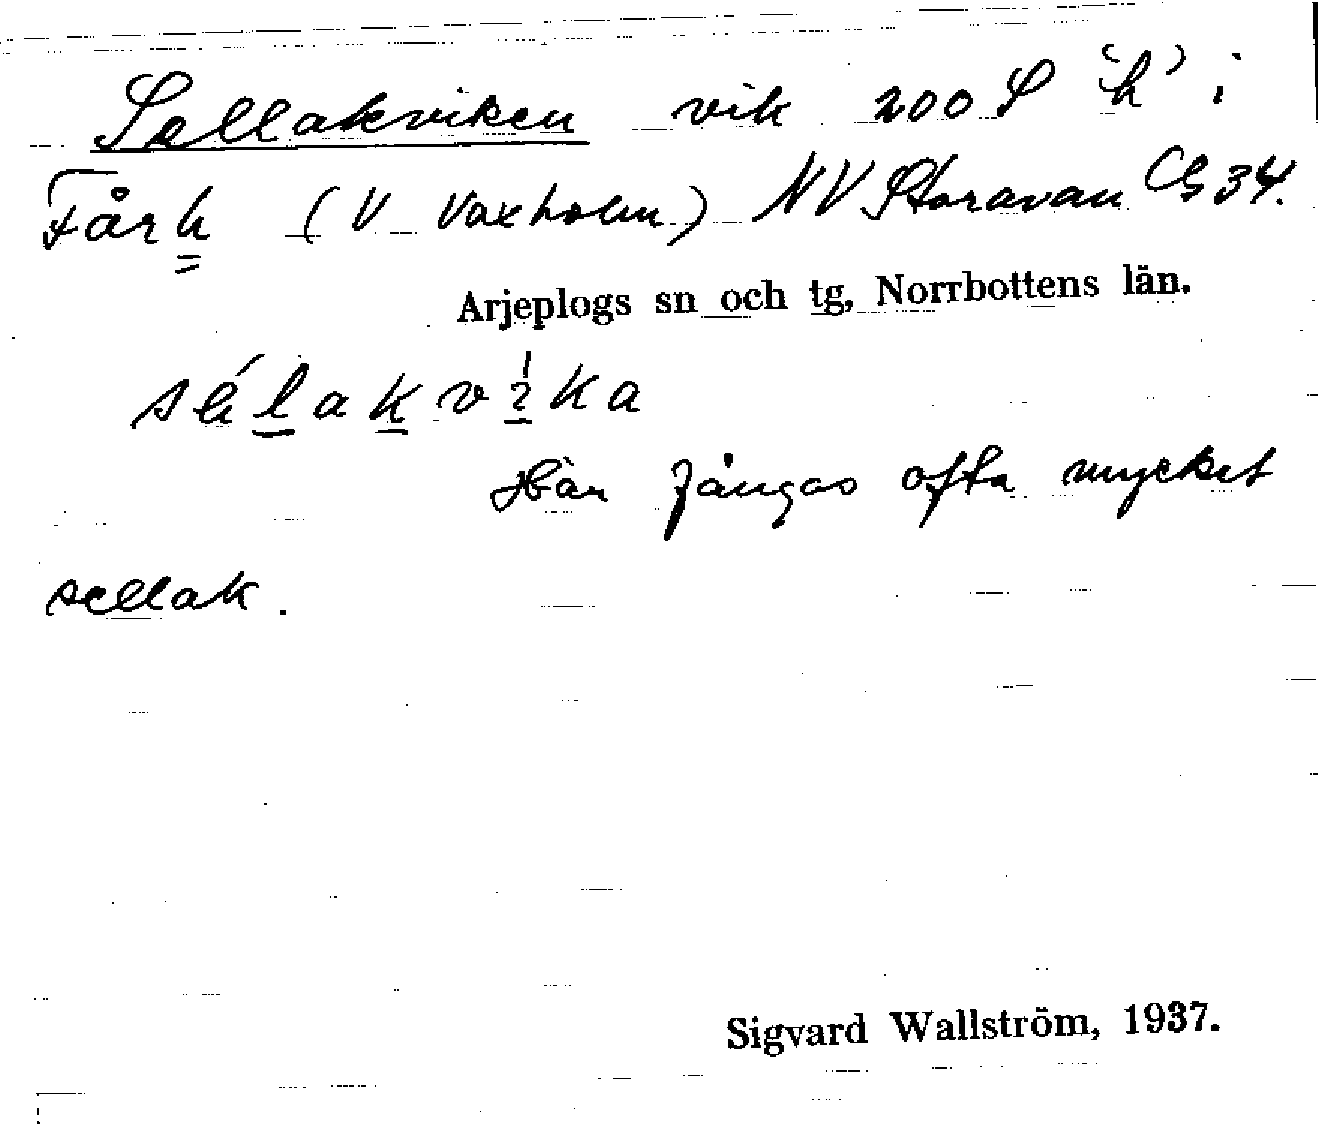 Sellakviken vik 200 S 'h' i
Fårh (V Vaxholm) NV Storavan CG 34.
Arjeplogs sn och tg, Norrbottens län.
sélakvika
Här fångas ofta mycket
sellak.
Sigvard Wallström, 1937.